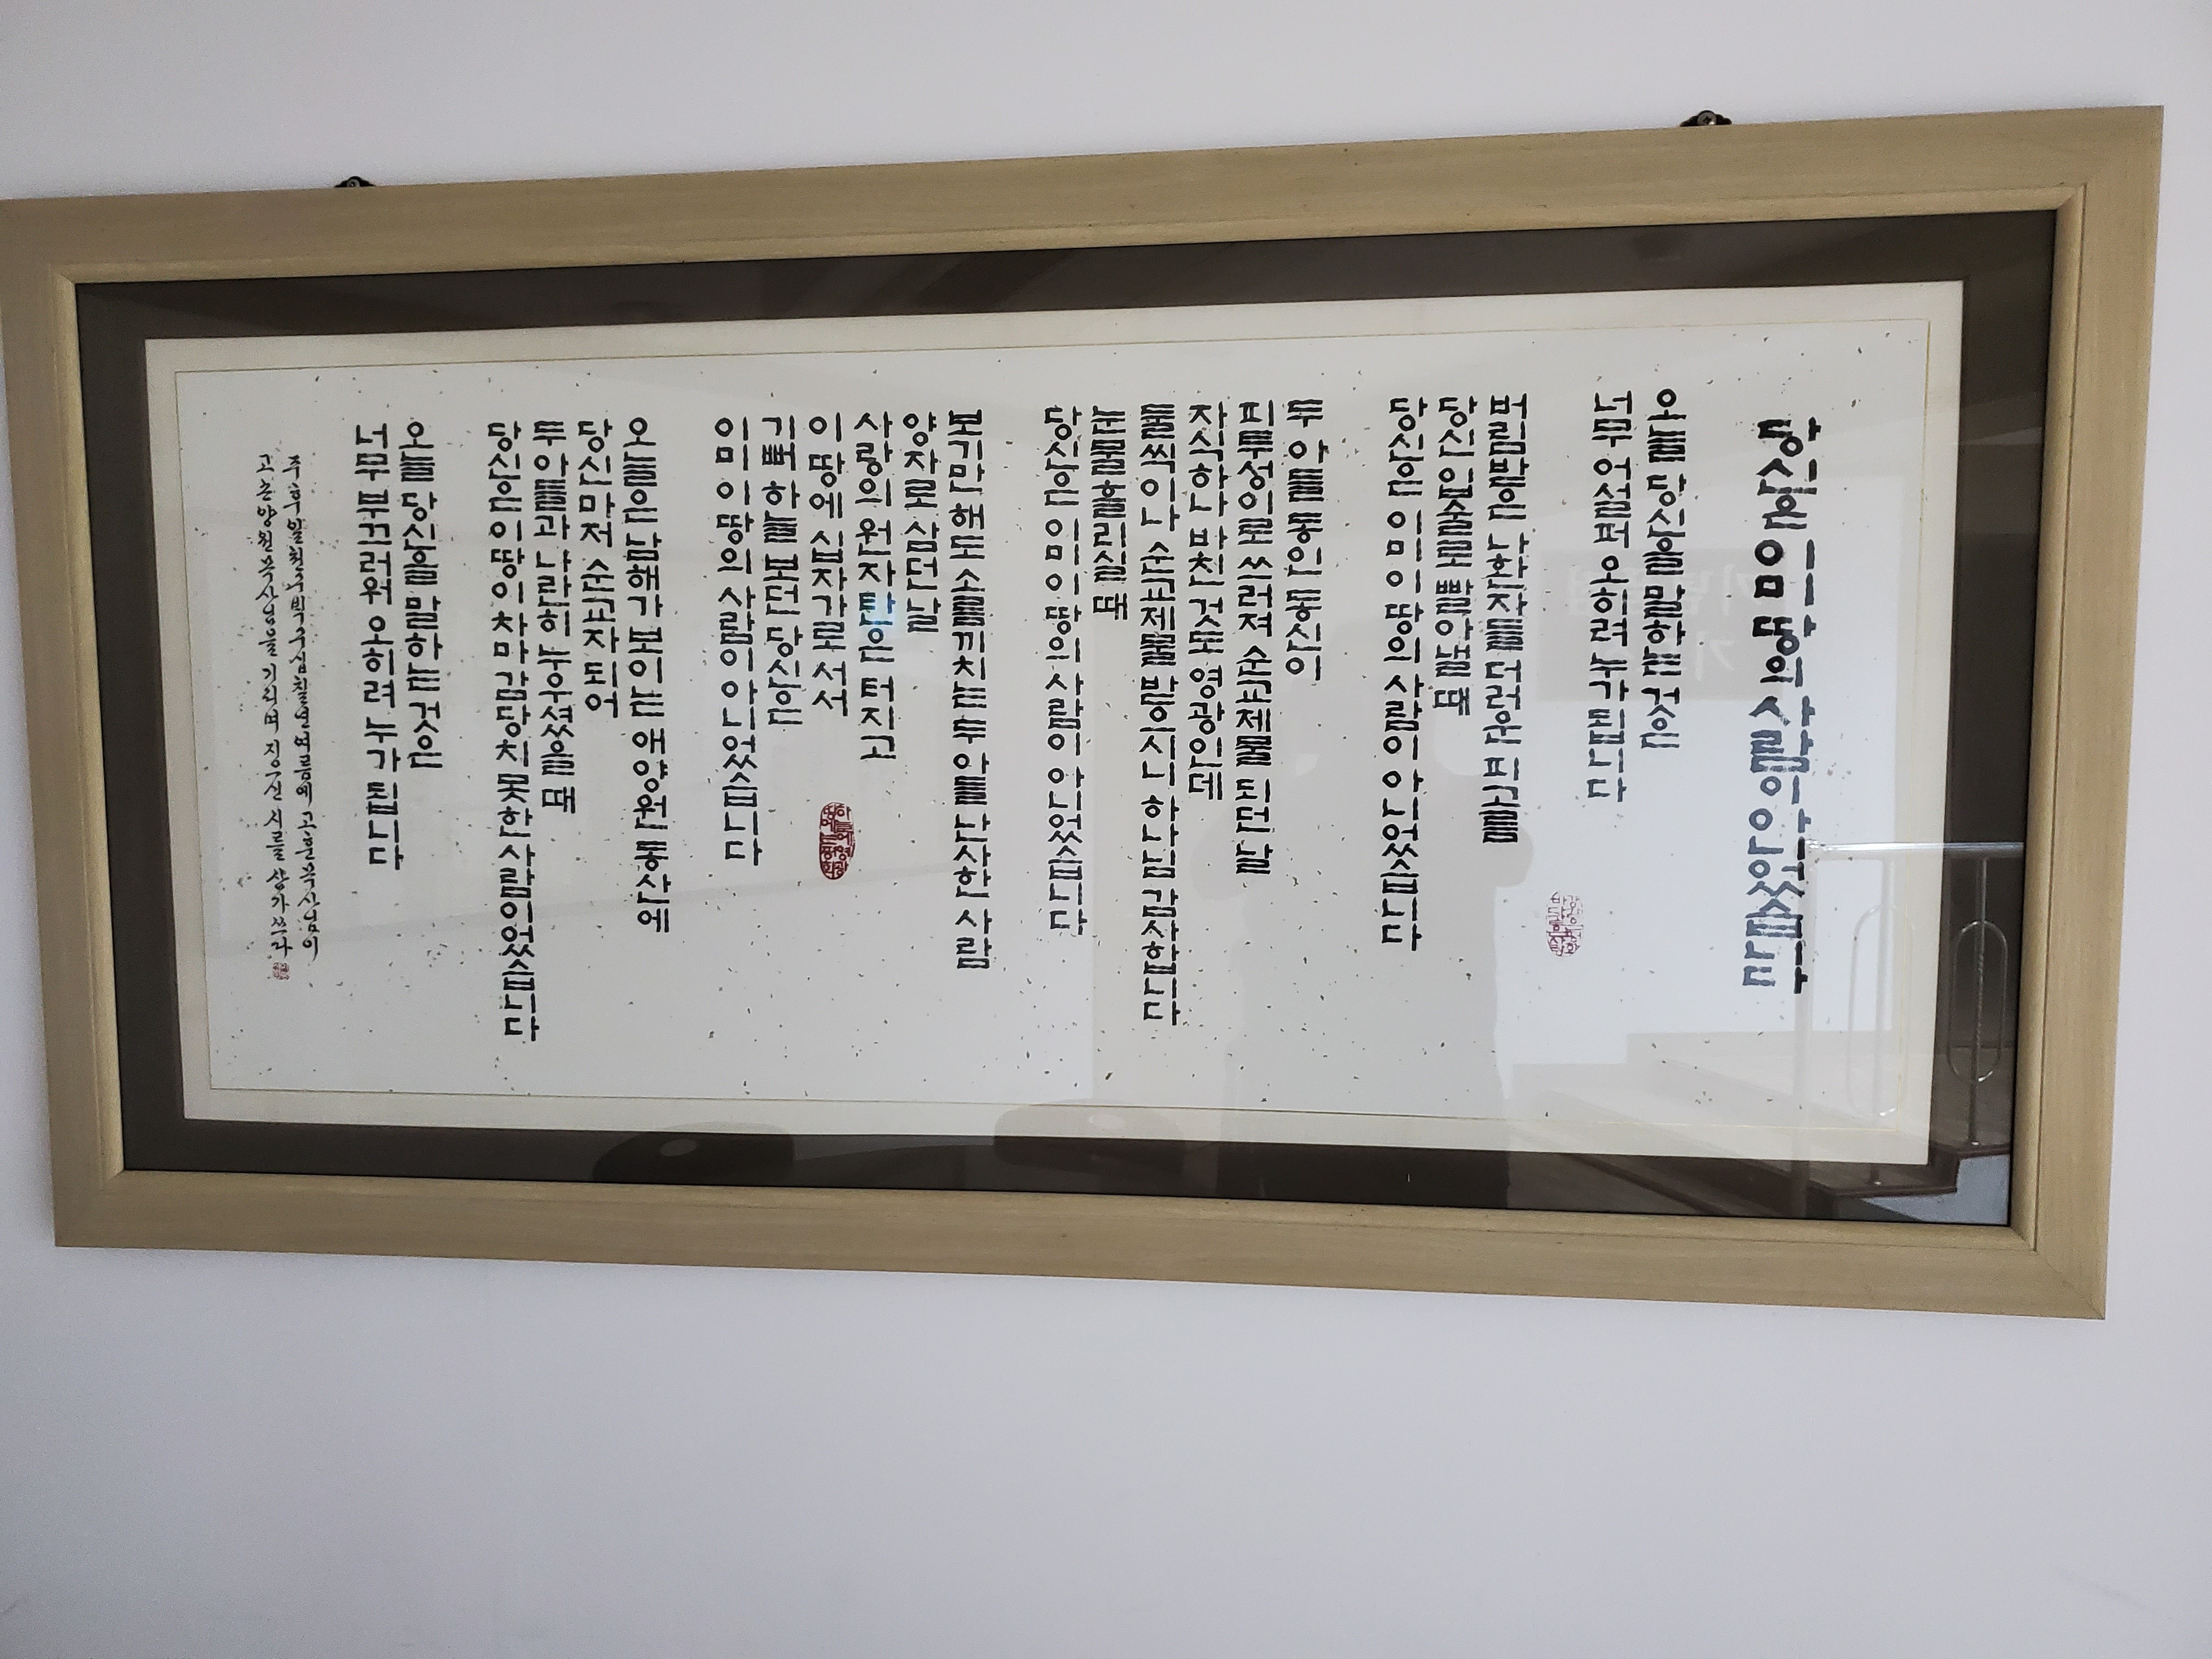 당신은 이미 이 땅의 사람이 아니었습니다
오늘 당신을 말하는 것은
너무 어설퍼 오히려 누가 됩니다
버림받은 나환자들 더러운 피고름
당신 입술로 빨아낼 때
당신은 이미 이 땅의 사람이 아니었습니다
두 아들 동인 동신이
피투성이로 쓰러져 순교제물 되던 날
자식 하나 바친 것도 영광인데
둘씩이나 순교제물 받으시니 하나님 감사합니다
눈물 흘리실 때
당신은 이미 이 땅의 사람이 아니었습니다
보기만 해도 소름끼치는 두 아들 난사한 사람
양자로 삼던 날
사랑의 원자탄은 터지고
이 땅에 십자가로 서서
기뻐 하늘 보던 당신은
이미 이 땅의 사람이 아니었습니다
하늘에 영광 땅에는 평화
오늘은 남해가 보이는 애양원 동산에
당신마저 순교자 되어
두 아들과 나란히 누우셨을 때
당신은 이 땅이 차마 감당치 못한 사람이었습니다
오늘 당신을 말하는 것은
너무 부끄러워 오히려 누가 됩니다
주후 일천구백구십칠년 여름에 고훈 목사님이
고 손양원 목사님을 기리며 지으신 시를 쓰다